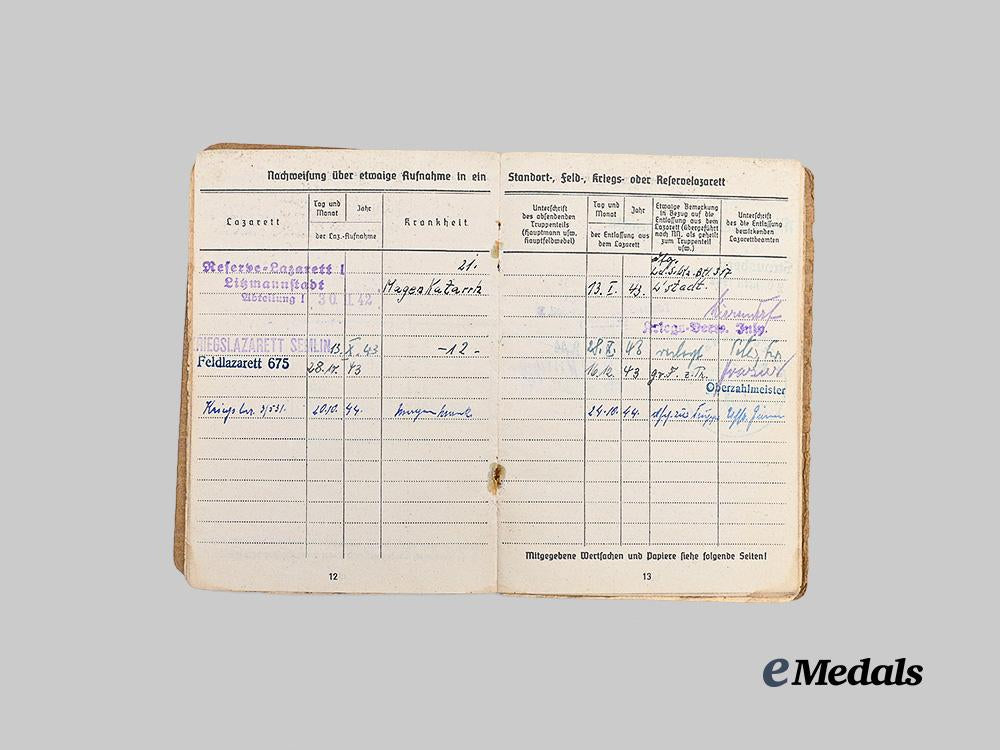 Nachweisung über etwaige Aufnahme in ein
Standort-, Feld-, Kriegs- oder Reservelazarett
Lazarett
Tag und Monat
Jahr
der Laz.-Aufnahme
Krankheit
Unterschrift des absendenden Truppenteils (Hauptmann usw. Hauptfeldwebel)
Tag und Monat
Jahr
der Entlassung aus dem Lazarett
Etwaige Bemerkung in Bezug auf die Entlassung aus dem Lazarett (übergeführt nach NN. als geheilt zum Truppenteil usw.)
Unterschrift des die Entlassung bewirkenden Lazarettbeamten
Reserve-Lazarett I
Litzmannstadt
Abteilung I 30. 42
21.
Magen Katarrh
13. I. 43. L'stadt.
Kriegs-Verw. Insp.
KRIEGSLAZARETT SEMLIN 13. X. 43 -12- 28. 43 verlegt
Feldlazarett 675 28. 43 16.12. 43
Oberzahlmeister
20.10. 44. 24.10. 44.
Mitgegebene Wertsachen und Papiere siehe folgende Seiten!
12
13
eMedals